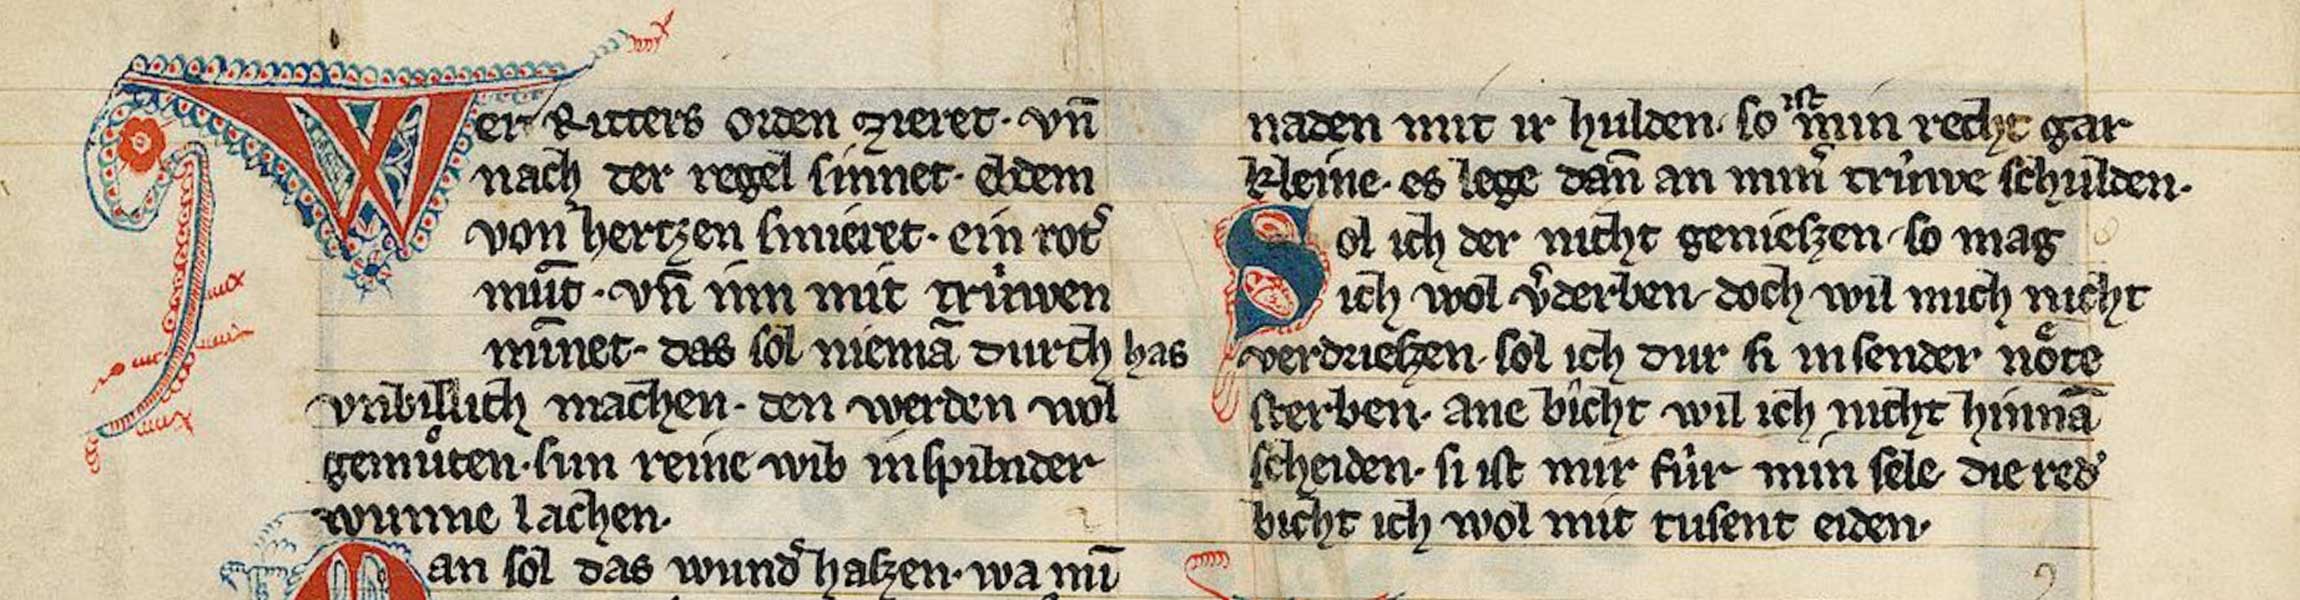 Wer Ritters orden zieret· vn̄
nach der regel sinnet· eldem
von hertzen smieret· ein rot᷑
mu̅t · vn̄ inn mit trúwen
minnet· das sol niemā durch has
vnbillich machen· den werden wol
gemuͦten· sun reine wib inspilnder
wunne lachen·
Man sol das wund᷑ haſzen· wa mī
naden mit ir hulden· so ist min recht gar
kleine· es lege dan̄ an min᷑ trúwe schulden·
Sol ich der nicht genieſzen· so mag
ich wol v᷑derben· doch wil mich nicht
verdrieſzen· sol ich dur si in sender noͤte
sterben· ane bîcht wil ich nicht hinnā
scheiden· si ist mir fúr min sele die red᷑
bicht ich wol mit tusent eiden·